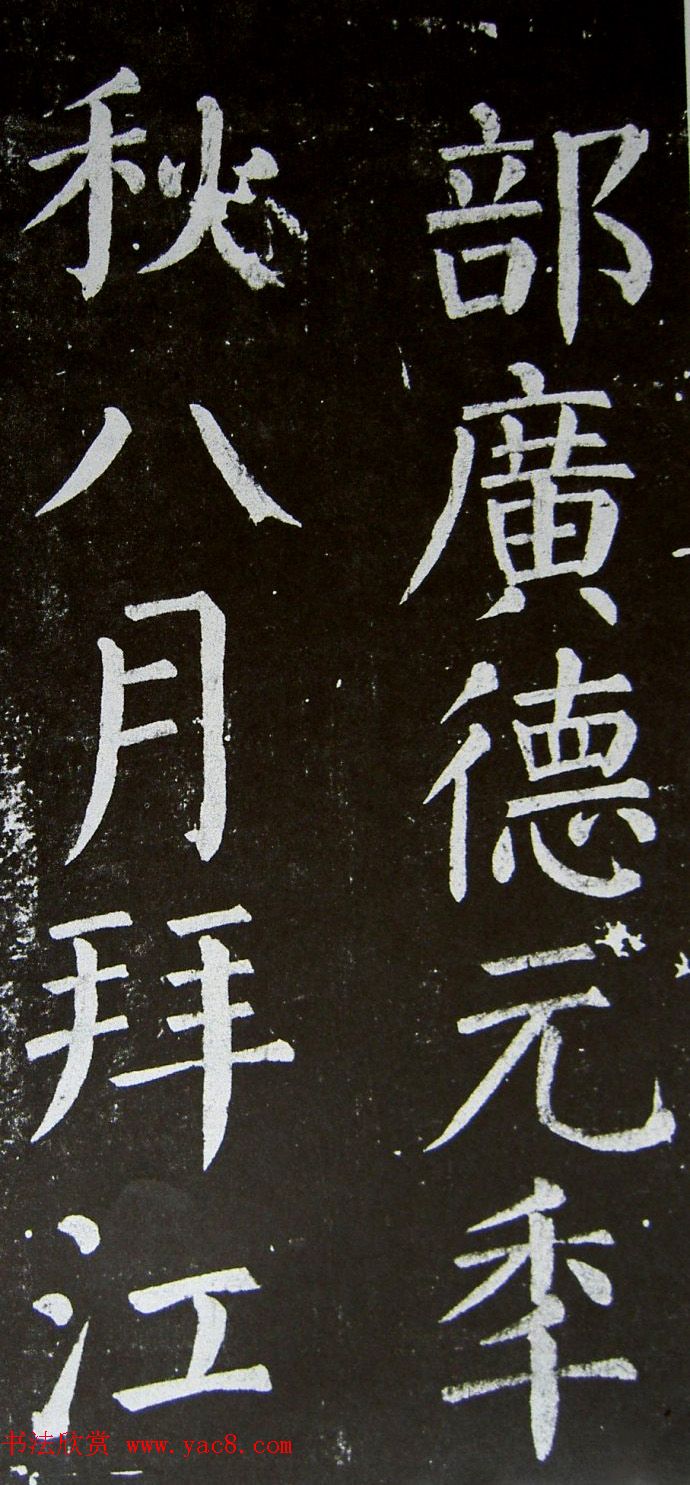 部廣德元秊
秋八月拜江
书法欣赏 www.yac8.com